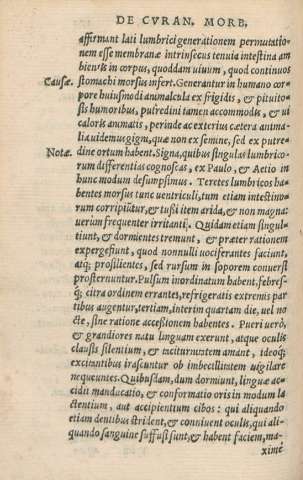 DE CVRAN. MORB.
affirmant lati lumbrici generationem permutatio-
nem esse membranæ intrinsecus tenuia intestina am
bientis in corpus, quoddam uiuum, quod continuos
Causæ. stomachi morsus infert. Generantur in humano cor-
pore huiusmodi animalcula ex frigidis, & pituito-
sis humoribus, putredini tamen accommodis, & ui
caloris animatis, perinde ac exterius cætera anima-
lia uidemus gigni, quæ non ex semine, sed ex putre-
Notæ. dine ortum habent. Signa, quibus singulas lumbrico-
rum differentias cognoscas, ex Paulo, & Aetio in
hunc modum desumpsimus. Teretes lumbricos ha-
bentes morsus tunc uentriculi, tum etiam intestino-
rum corripiūtur, & tussi item arida, & non magna:
uerum frequenter irritanti. Quidam etiam singul-
tiunt, & dormientes tremunt, & præter rationem
expergefiunt, quod nonnulli uociferantes faciunt,
atq; prosilientes, sed rursum in soporem conuersi
prosternuntur. Pulsum inordinatum habent, febres-
q; citra ordinem errantes, refrigeratis extremis par
tibus augentur, tertiam, interim quartam die, uel no
cte, sine ratione accessionem habentes. Pueri uerò,
& grandiores natu linguam exerunt, atque oculis
clausis silentium, & taciturnitatem amant, ideoq;
excitantibus irascuntur ob imbecillitatem uigilare
nequeuntes. Quibusdam, dum dormiunt, linguæ ac-
cidit manducatio, & conformatio oris in modum la
ctentium, aut accipientium cibos: qui aliquando
etiam dentibus strident, & conniuent oculis, qui ali-
quando sanguine suffusi sunt, & habent faciem, ma-
ximè